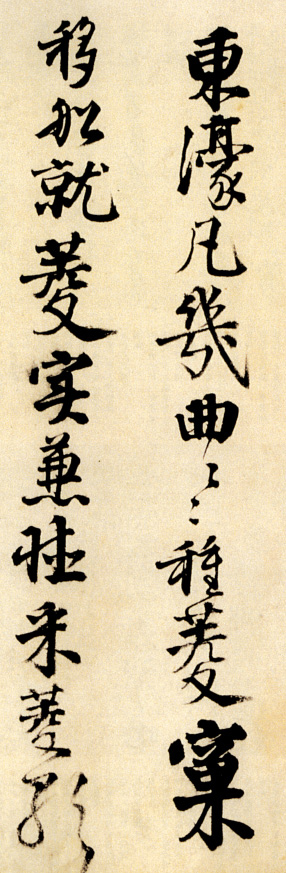 東濠凡幾曲〻種菱窠
移船就菱实兼聽采菱歌